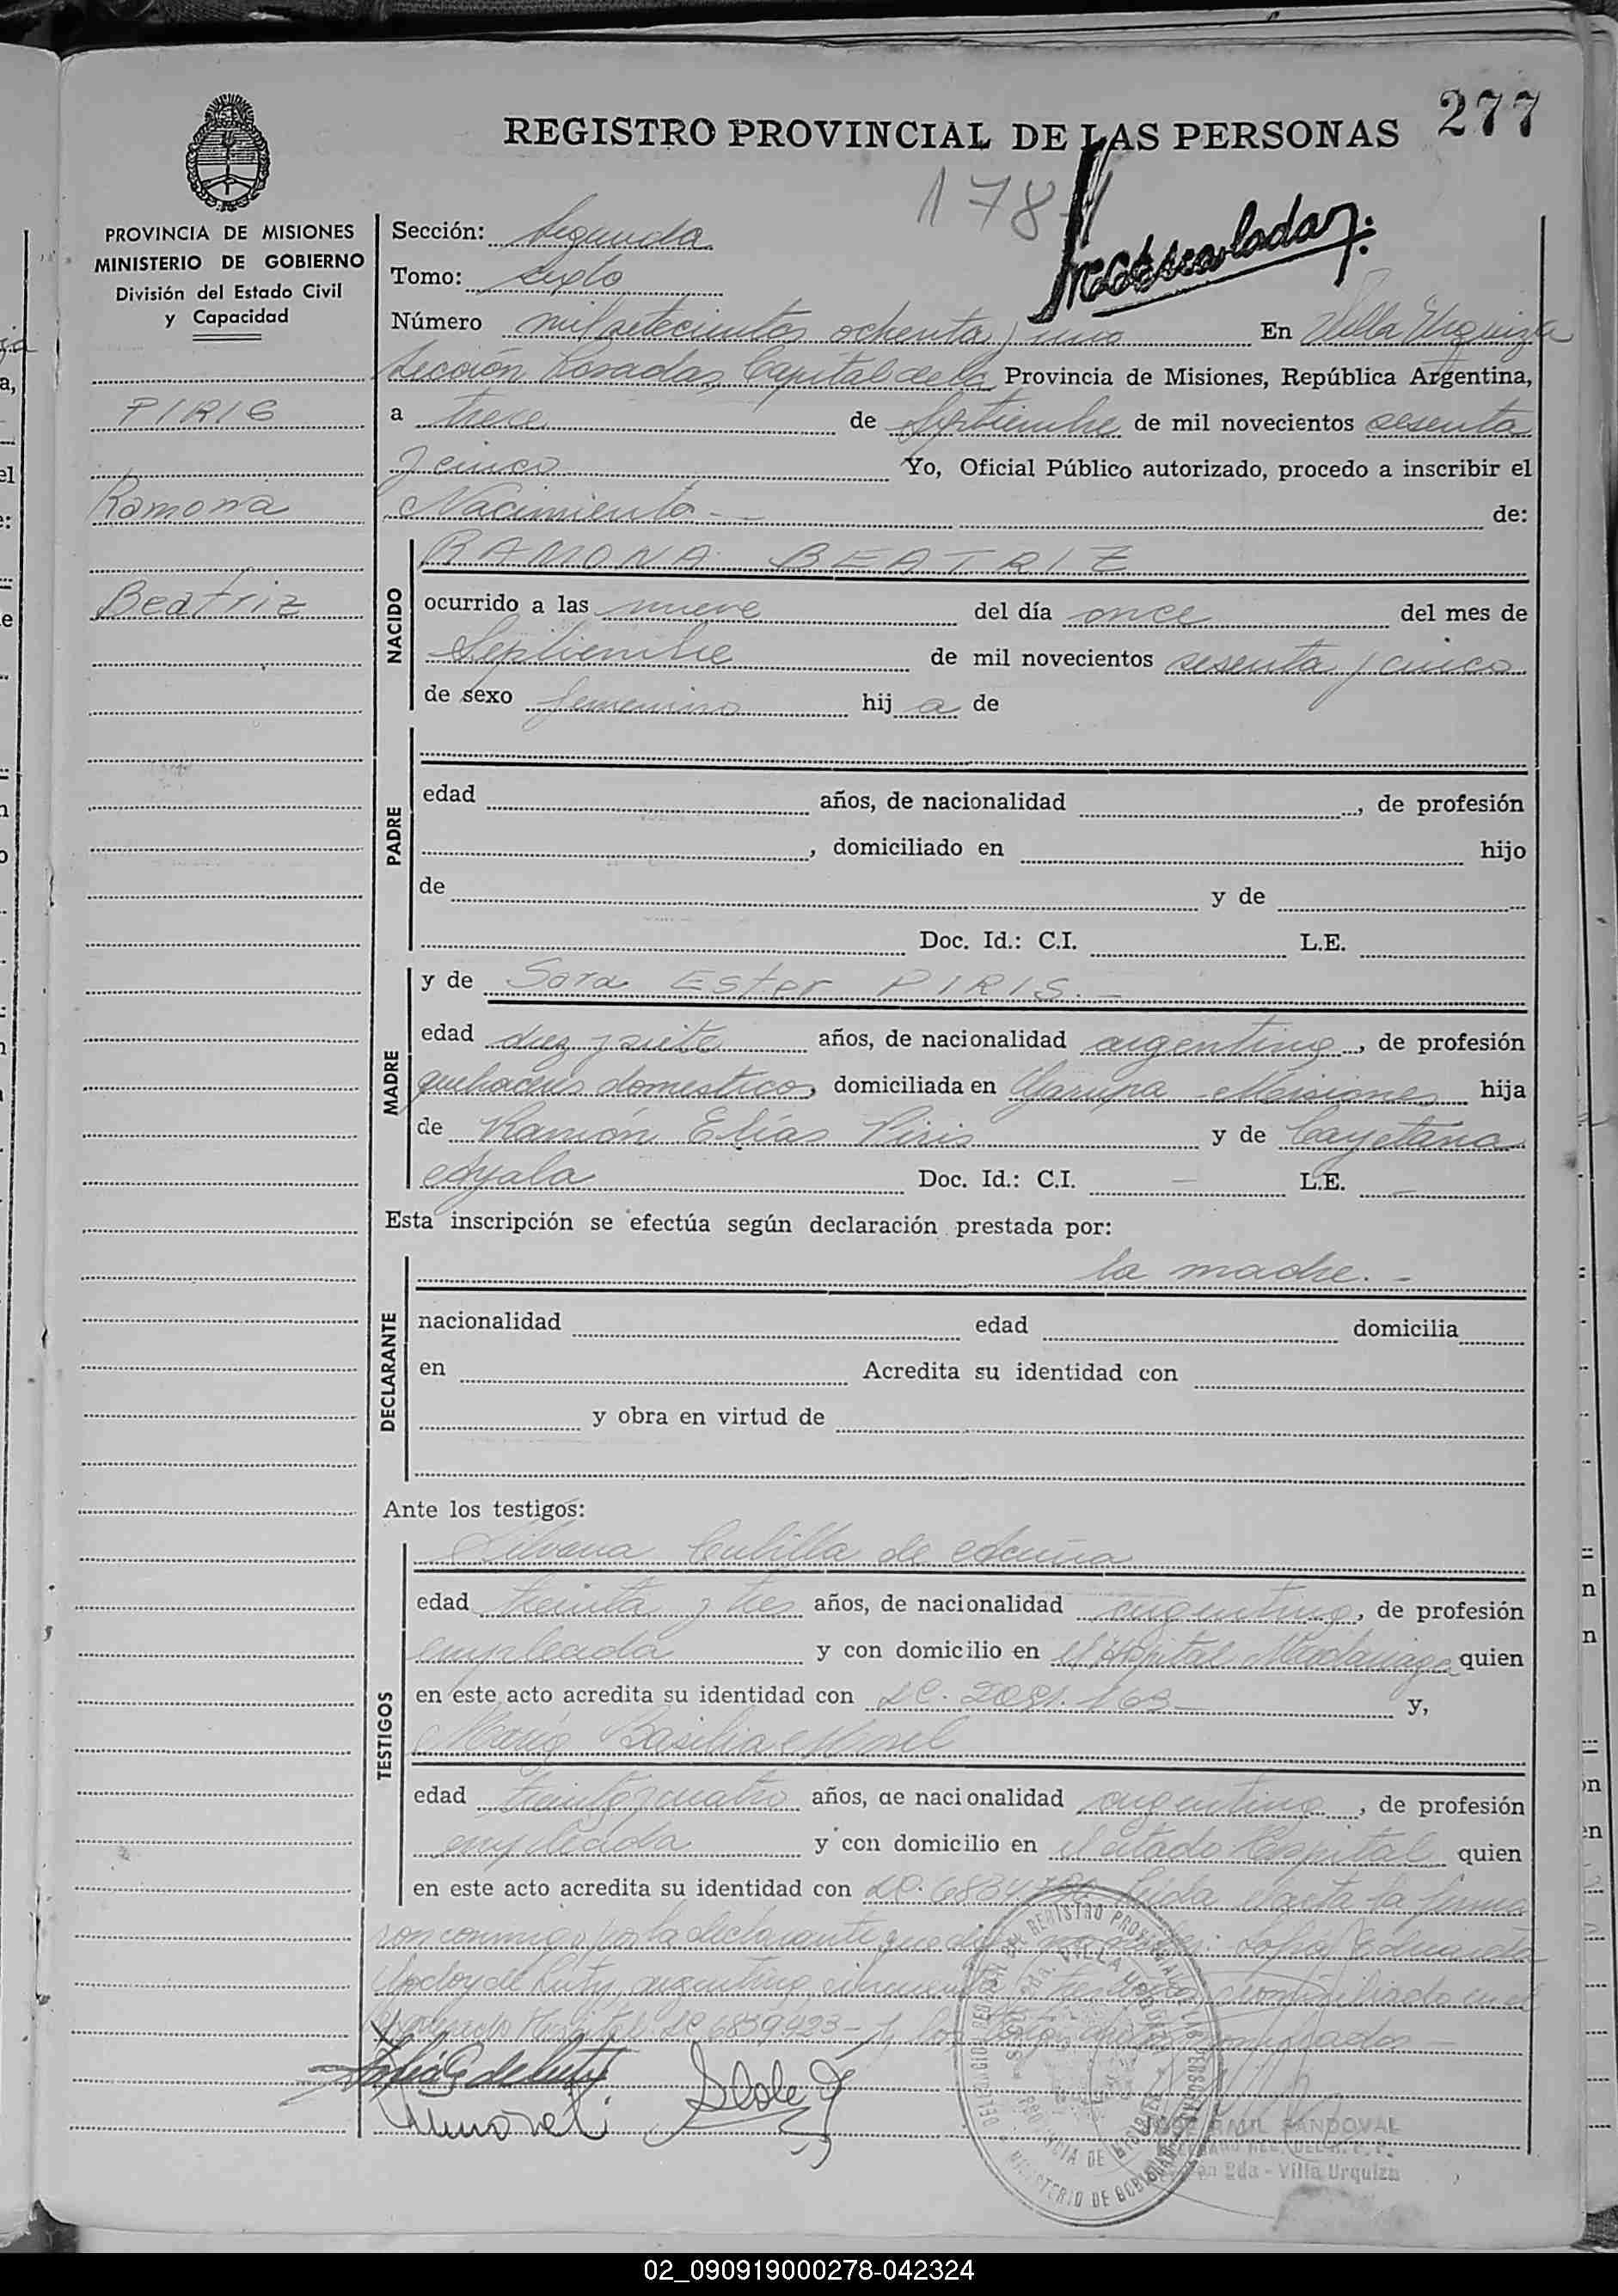 277
REGISTRO PROVINCIAL DE LAS PERSONAS
178
PROVINCIA DE MISIONES
MINISTERIO DE GOBIERNO
División del Estado Civil
y Capacidad
PIRIS
Ramona
Beatriz
Sección: Segunda
Tomo: sexto
Número mil setecientos ochenta y uno En Villa Urquiza
Sección Posadas, Capital de la Provincia de Misiones, República Argentina,
a trece de Septiembre de mil novecientos sesenta
y cinco Yo, Oficial Público autorizado, procedo a inscribir el
Nacimiento.- de:
NACIDO
RAMONA BEATRIZ
ocurrido a las nueve del día once del mes de
Septiembre de mil novecientos sesenta y cinco
de sexo femenino hij a de
PADRE
edad años, de nacionalidad , de profesión
, domiciliado en hijo
de y de
Doc. Id.: C.I. L.E.
MADRE
y de Sara Ester PIRIS.-
edad diez y siete años, de nacionalidad argentina, de profesión
quehaceres domesticos, domiciliada en Garupa - Misiones hija
de Ramón Elías Piris y de Cayetana
Ayala Doc. Id.: C.I. - L.E. -
Esta inscripción se efectúa según declaración prestada por:
DECLARANTE
la madre.-
nacionalidad edad domicilia
en Acredita su identidad con
y obra en virtud de
Ante los testigos:
TESTIGOS
Silvana de
edad treinta y tres años, de nacionalidad argentina, de profesión
empleada y con domicilio en el Hospital Madariaga quien
en este acto acredita su identidad con LC. 163 y,
María Basilia
edad treinta y cuatro años, de nacionalidad argentina, de profesión
empleada y con domicilio en el citado Hospital quien
en este acto acredita su identidad con LC. Leida el acta la firma
con conmigo por la declarante que dijo no : Sofia Eduarda
Godoy de argentina, cincuenta y tres domiciliada en el
Hospital LC 6839923 - y los testigos
Sofía G de
DELEGACION REGISTRO PROVINCIAL DE LAS PERSONAS
VILLA URQUIZA
PROVINCIA DE MISIONES
MINISTERIO DE GOBIERNO
RAUL SANDOVAL
2da - Villa Urquiza
02_090919000278-042324